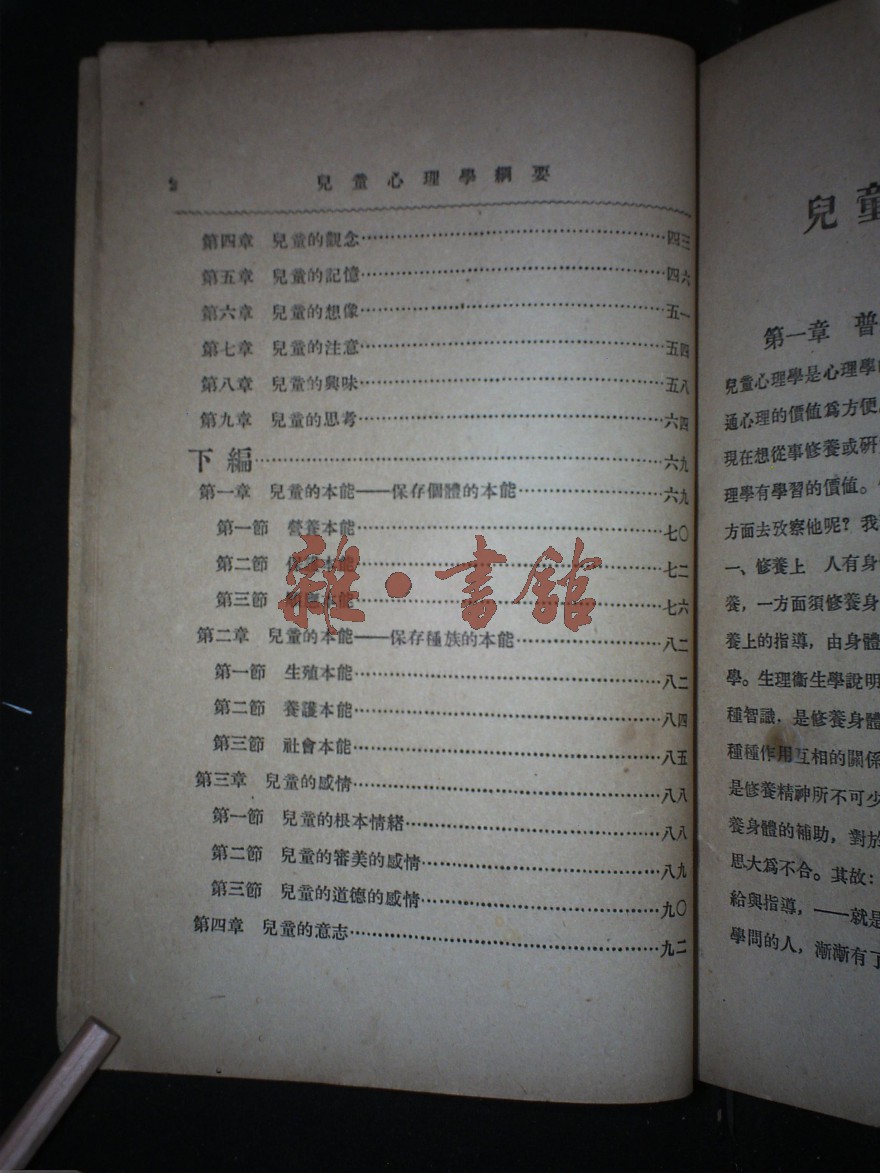 2 兒童心理學綱要
第四章 兒童的觀念……四三
第五章 兒童的記憶……四六
第六章 兒童的想像……五一
第七章 兒童的注意……五四
第八章 兒童的興味……五八
第九章 兒童的思考……六四
下編……六九
第一章 兒童的本能——保存個體的本能……六九
第一節 營養本能……七〇
第二節 保護本能……七二
第三節 順應本能……七六
第二章 兒童的本能——保存種族的本能……八二
第一節 生殖本能……八二
第二節 養護本能……八四
第三節 社會本能……八五
第三章 兒童的感情……八八
第一節 兒童的根本情緒……八八
第二節 兒童的審美的感情……八九
第三節 兒童的道德的感情……九〇
第四章 兒童的意志……九二
雜·書館
兒童
第一章 普
兒童心理學是心理學
通心理的價值爲方便
現在想從事修養或研
理學有學習的價值。
方面去攷察他呢？我
一、修養上 人有身
養，一方面須修養身
養上的指導，由身體
學。生理衞生學說明
種智識，是修養身體
種種作用互相的關係
是修養精神所不可少
養身體的補助，對於
思大爲不合。其故：
給與指導，——就是
學問的人，漸漸有了